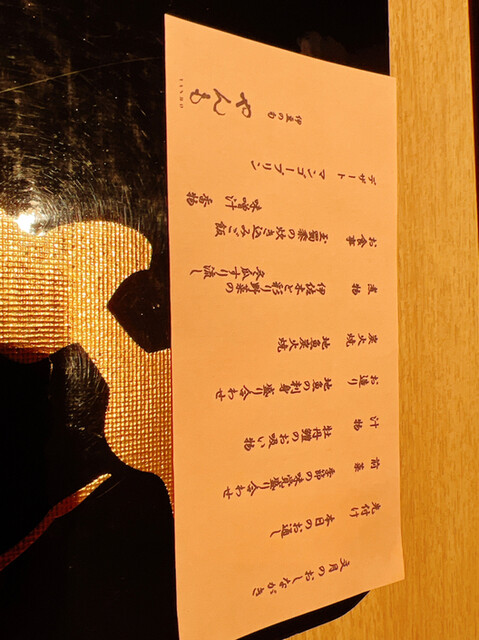 文月のおしながき
先付け
本日のお通し
前菜
季節の味覚盛り合わせ
汁物
牡丹鱧のお吸い物
お造り
地魚の刺身盛り合わせ
炭火焼
地魚炭火焼
煮物
伊佐木と彩り野菜の
冬瓜すり流し
お食事
玉蜀黍の炊き込みご飯
味噌汁 香物
デザート
マンゴープリン
伊豆の台所
やんも